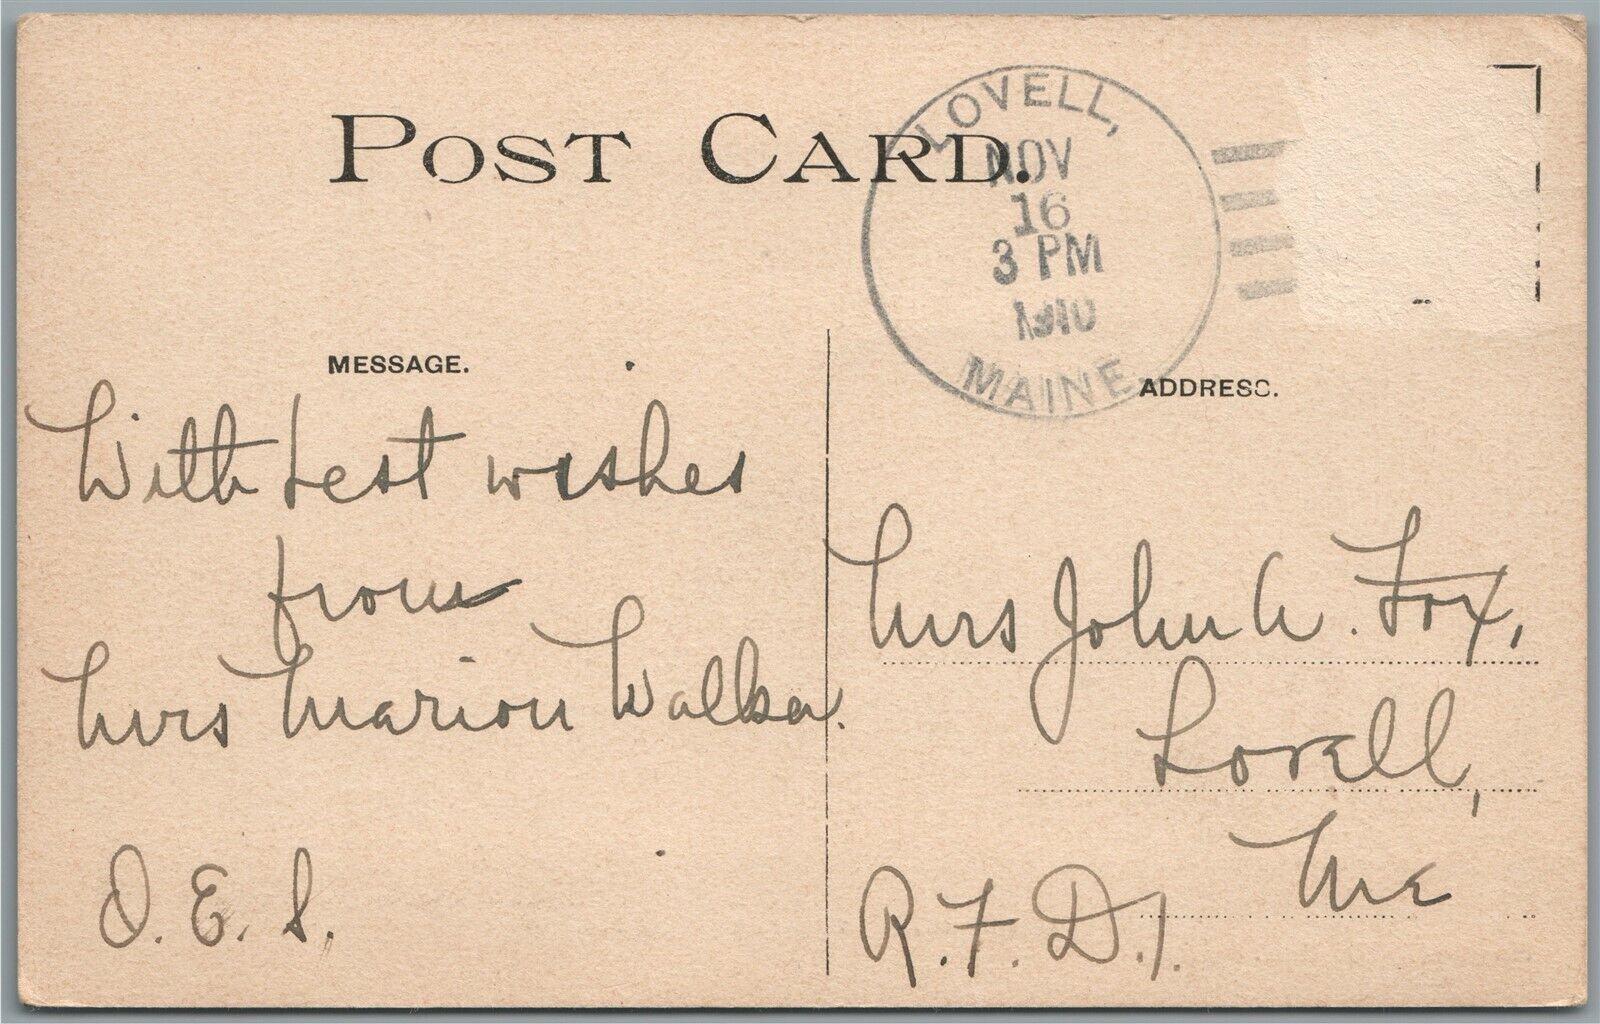 POST CARD.
LOVELL,
NOV
16
3 PM
1910
MAINE
MESSAGE.
ADDRESS.
With best wishes
from
Mrs Marion Walker.
O. E. S.
Mrs John A. Fox,
Lovell,
Me
R. F. D. 1.